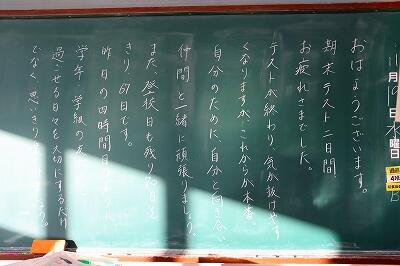 11月19日水曜日
おはようございます。
期末テスト二日間、
お疲れさまでした。
テストが終わり、気が抜けやす
くなりますが、これからが本番。
自分のために、自分と向き合い
仲間と一緒に頑張りましょう。
また、登校日も残り
きり、67日です。
昨日の四時間目
学年・学級の
過ごせる日々を大切にするだけ
でなく、思いきり